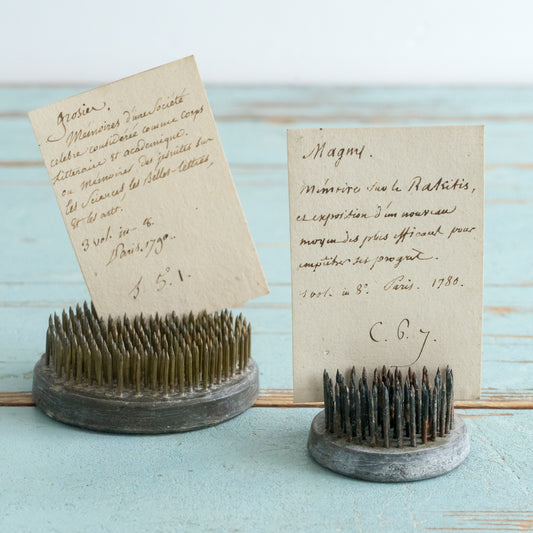 Grosier.
Mémoires d'une Société
celebre considérée comme corps
litteraire et academique.
ou Mémoires des jésuites sur
les Sciences, les Belles-lettres,
et les arts.
3 vol. in 8.
Paris. 1790.
Magny.
Mémoire sur le Rakitis,
et exposition d'un nouveau
moyen des plus efficace pour
empêcher ses progrès.
1 vol. in 8º. Paris. 1780.
C. 6. 7.